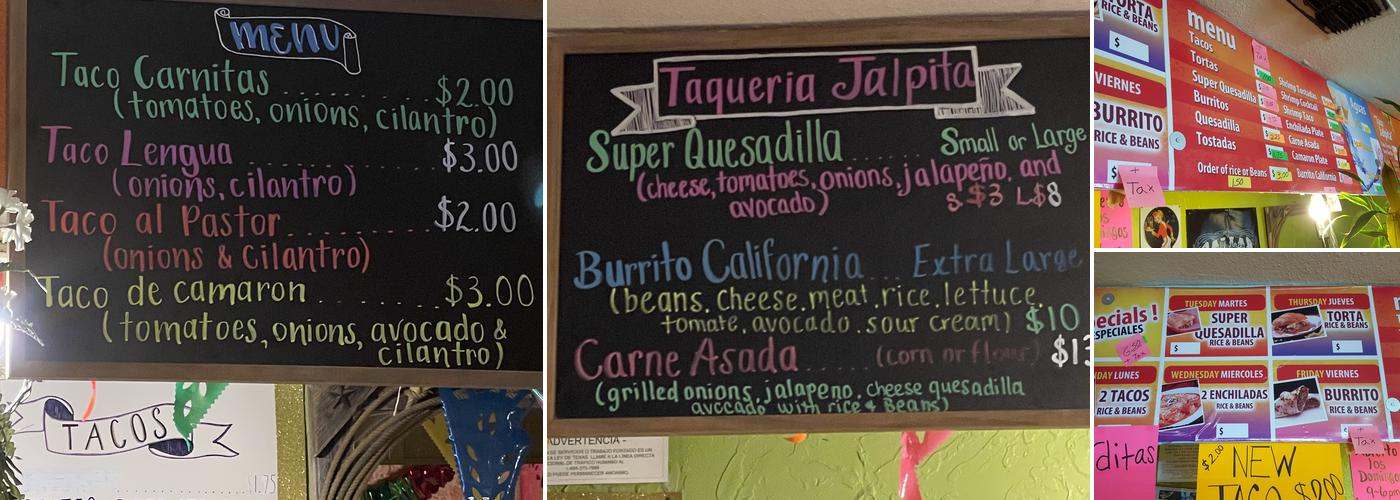 menu
Taco Carnitas ........ $2.00
(tomatoes, onions, cilantro)
Taco Lengua ........ $3.00
(onions, cilantro)
Taco al Pastor ........ $2.00
(onions & cilantro)
Taco de camaron ...... $3.00
(tomatoes, onions, avocado &
cilantro)
TACOS
1.75
Taqueria Jalpita
Super Quesadilla ..... Small or Large
(cheese, tomatoes, onions, jalapeño, and
avocado) s $3 L $8
Burrito California ... Extra Large
(beans, cheese, meat, rice, lettuce,
tomate, avocado, sour cream) $10
Carne Asada ..... (corn or flour) $13
(grilled onions, jalapeno, cheese quesadilla
avocado with rice & Beans)
ADVERTENCIA -
RICE & BEANS
$
VIERNES
BURRITO
RICE & BEANS
$
+
Tax
menu
Tacos
Tortas
Super Quesadilla
Burritos
Quesadilla
Tostadas
Order of rice or Beans
1.50
Shrimp Tostadas
Shrimp Cocktail
Shrimp Taco
Enchilada Plate
Carne Asada
Camaron Plate
Burrito California
$ 3.00
Aguas
ecials!
ESPECIALES
6.50
+ Tax
TUESDAY MARTES
SUPER
QUESADILLA
RICE & BEANS
$
THURSDAY JUEVES
TORTA
RICE & BEANS
$
DAY LUNES
2 TACOS
RICE & BEANS
WEDNESDAY MIERCOLES
2 ENCHILADAS
RICE & BEANS
$
FRIDAY VIERNES
BURRITO
RICE & BEANS
$
+
Tax
ditas
$2.00
NEW
TACO
los
Domingos
9-6pm